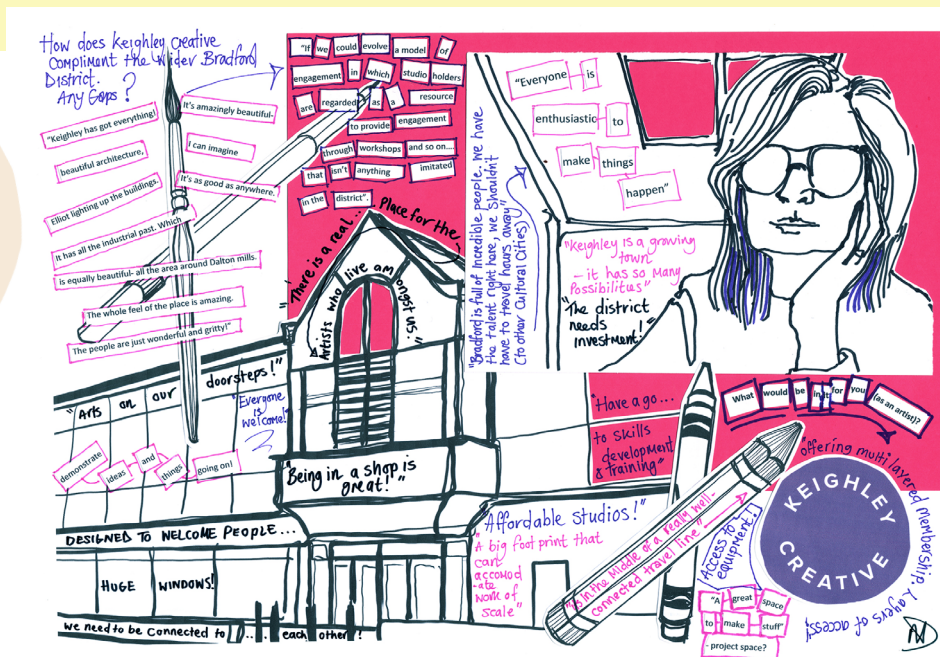 How does Keighley Creative
Compliment the Wider Bradford
District.
Any Gaps?
"Keighley has got everything!
beautiful architecture,
Elliot lighting up the buildings.
It has all the industrial past. Which
is equally beautiful- all the area around Dalton mills.
The whole feel of the place is amazing.
The people are just wonderful and gritty!"
It's amazingly beautiful-
I can imagine
It's as good as anywhere.
"If we could evolve a model of
engagement in which studio holders
are regarded as a resource
to provide engagement
through workshops and so on....
that isn't anything imitated
in the district".
"There is a real... Place for the
Artists who live amongst us"
"Everyone is
enthusiastic to
make things
happen"
"Bradford is full of incredible people. we have
the talent right here, we shouldn't
have to travel hours away"
(to other Cultural Cities)
"Keighley is a growing
town
- it has so many
Possibilities"
"The district
needs
investment!"
"Arts on our doorsteps!"
"Everyone
is
welcome!"
demonstrate ideas and things going on!
"Being in a shop is
Great!"
DESIGNED TO WELCOME PEOPLE...
HUGE WINDOWS!
we need to be connected to .... each other!
"Have a go...
to skills
development
& training"
"Affordable Studios!"
"A big foot print that
cart
accomod
-ate
work of
scale"
"is in the middle of a really well-
connected travel line"
What would be in it for you (as an artist)?
"offering multi layered membership! Layers of access"
Access to
equipment!
KEIGHLEY
CREATIVE
"A great space
to make stuff"
- project space?